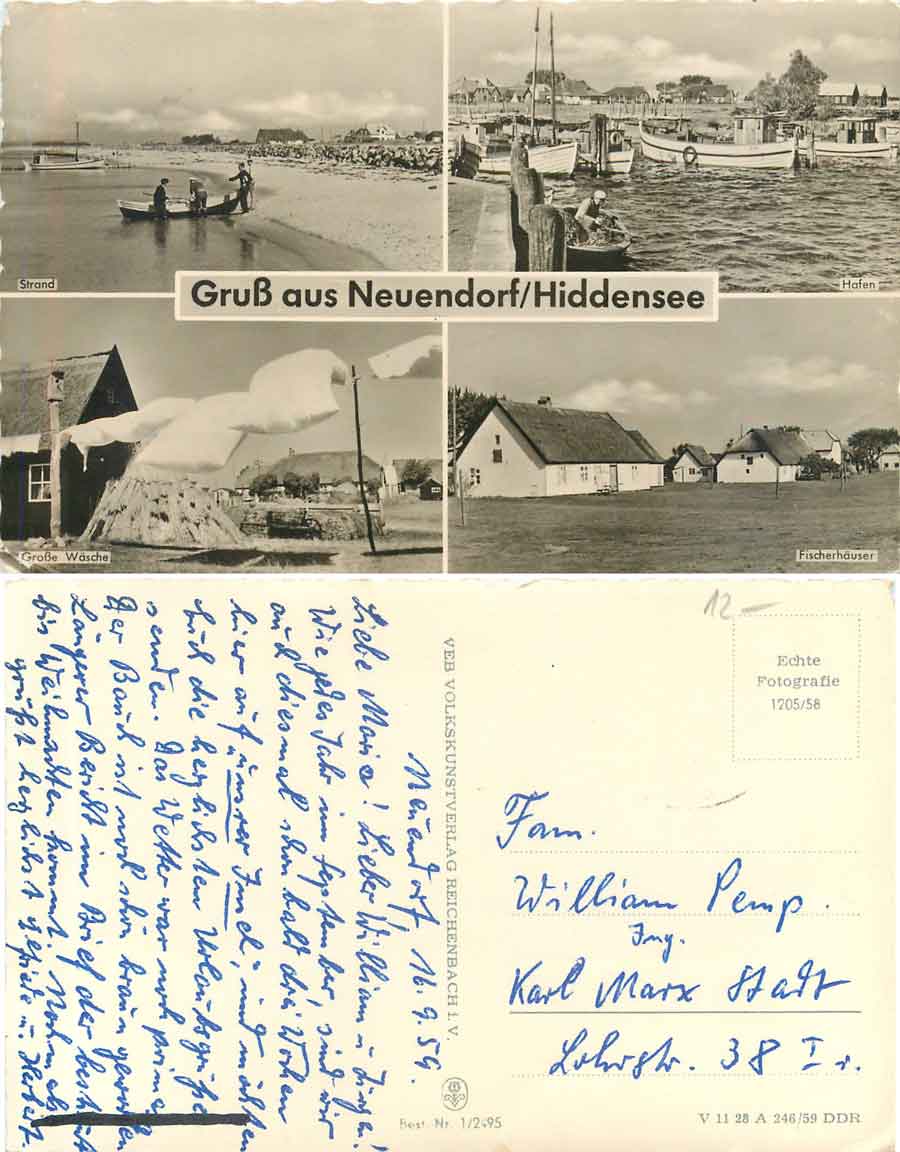 Strand
Hafen
Gruß aus Neuendorf/Hiddensee
Große Wäsche
Fischerhäuser
Neuendorf 16.9.59.
Liebe Maria! Lieber William u. Jürgen!
Wie jedes Jahr im September, sind wir
auch diesmal schon bald drei Wochen
hier auf „unserer Insel“ und möchten
Euch die herzlichsten Urlaubsgrüße
senden. Das Wetter war noch prima.
Der Bauch ist auch schön braun geworden
Längerer Bericht im Brief der bestimmt
bis Weihnachten kommt. Nochmals
grüßt herzlichst u. Herbert.
VEB VOLKSKUNSTVERLAG REICHENBACH i. V.
Best. Nr. 1/2495
12 –
Echte
Fotografie
1205/58
Fam.
William Pemp.
Ing.
Karl Marx Stadt
Lohrstr. 38 I r.
V 11 28 A 246/59 DDR